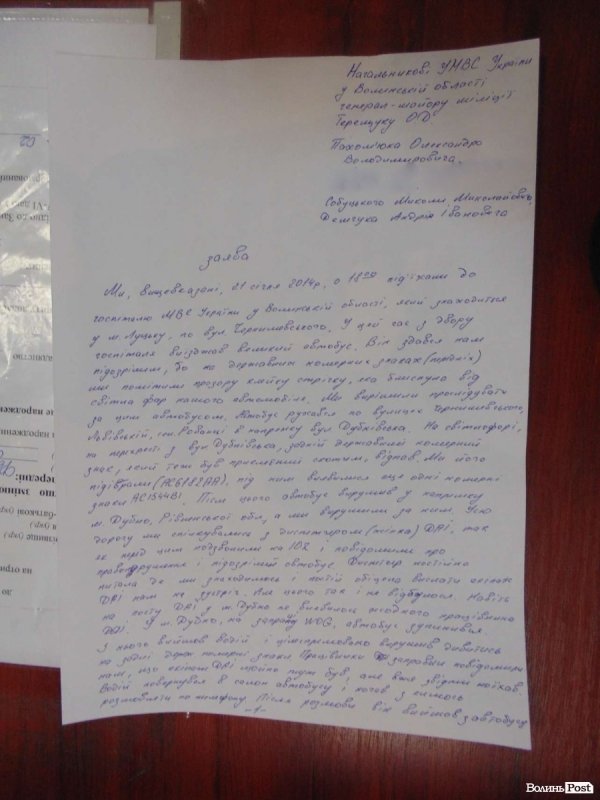 Начальникові УМВС України
у Волинській області
генерал-майору міліції
Терещуку ОД
Пахом'юка Олександра
Володимировича.
Собуцького Миколи Миколайовича,
Андрія Івановича
заява
Ми, вищевказані, 21 січня 2014р, о 18 00 під'їхали до
госпіталю МВС України у Волинській області, який знаходиться
у м. Луцьку, по вул. Чернишевського. У цей час з двору
госпіталя виїзджав великий автобус. Він здався нам
підозрілим, бо на державних номерних знаках (передніх)
ми помітили прозору клейку стрічку, яка блиснула від
світла фар нашого автомобіля. Ми вирішили прослідувати
за цим автобусом. Автобус рухався по вулицях Чернишевського,
Львівській, в напрямку вул Дубнівська. На світлофорі,
на перехресті з вул Дубнівська, задній державний номерний
знак, який теж був приклеєний скотчем, відпав. Ми його
підібрали (АС6187АА), під ним виявилися ще одні номерні
знаки АС1544ВІ. Після цього автобус вирушив у напрямку
м. Дубно, Рівненської обл, а ми вирушили за ним. Усю
дорогу ми спілкувались з диспетчером (жінка) ДАІ, так
як перед цим подзвонили на 102 і повідомили про
правопорушення і підозрілий автобус. Диспетчер постійно
питала де ми знаходимось і постій обіцяла вислати екіпаж
ДАІ нам на зустріч. Але цього так і не відбулося. Навіть
на посту ДАІ у м. Дубно не виявилось жодного працівника
ДАІ. У м. Дубно, на заправці WOG, автобус зупинився.
З нього вийшов водій і цілеспрямовано вирушив дивитись
на задні держ номерні знаки Працівники заправки повідомили
нам, що екіпаж ДАІ щойно тут був, але вже звідти поїхав.
Водій повернувся в салон автобусу і почав з кимось
розмовляти по телефону. Після розмови він вийшов з автобусу
-1-
ВолиньPost